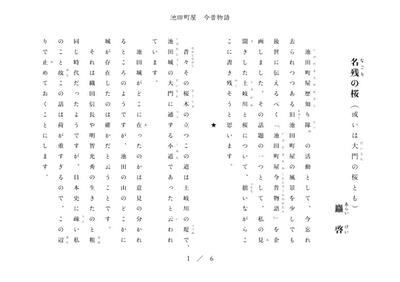 池田町屋　今昔物語
名残の桜（或いは大門の桜とも）
巖　啓
「池田町屋歴知り隊」の活動として、今忘れ
去られつつある旧池田町屋の風景を少しでも
後世に伝えるべく「池田町屋今昔物語」を企
画しました。その話題の一つとして、私の見
聞きした土岐川と桜について、拙いながらこ
こに書き残そうと思います。
★
昔々その桜木の立つこの道は土岐川の堤で、
池田城の大門に通ずる小道であったと云われ
ています。
池田城がどこに在ったのかは意見の分かれ
るところのようですが、池田の山のどこかに
城が存在したのは確かだと云うことです。
それは織田信長や明智光秀の生きたのと粗
同じ時代だったようですが、日本史に疎い私
のこと故この話は荷が重すぎるので、この辺
りで止めておくことにします。
1 ／ 6